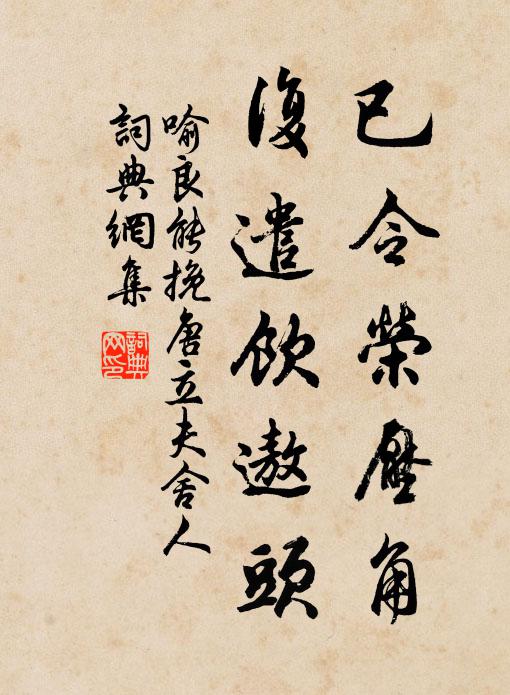 已令榮壓角
復遣飲遨頭
喻良能挽唐立夫舍人
詞典網集
詞典網印